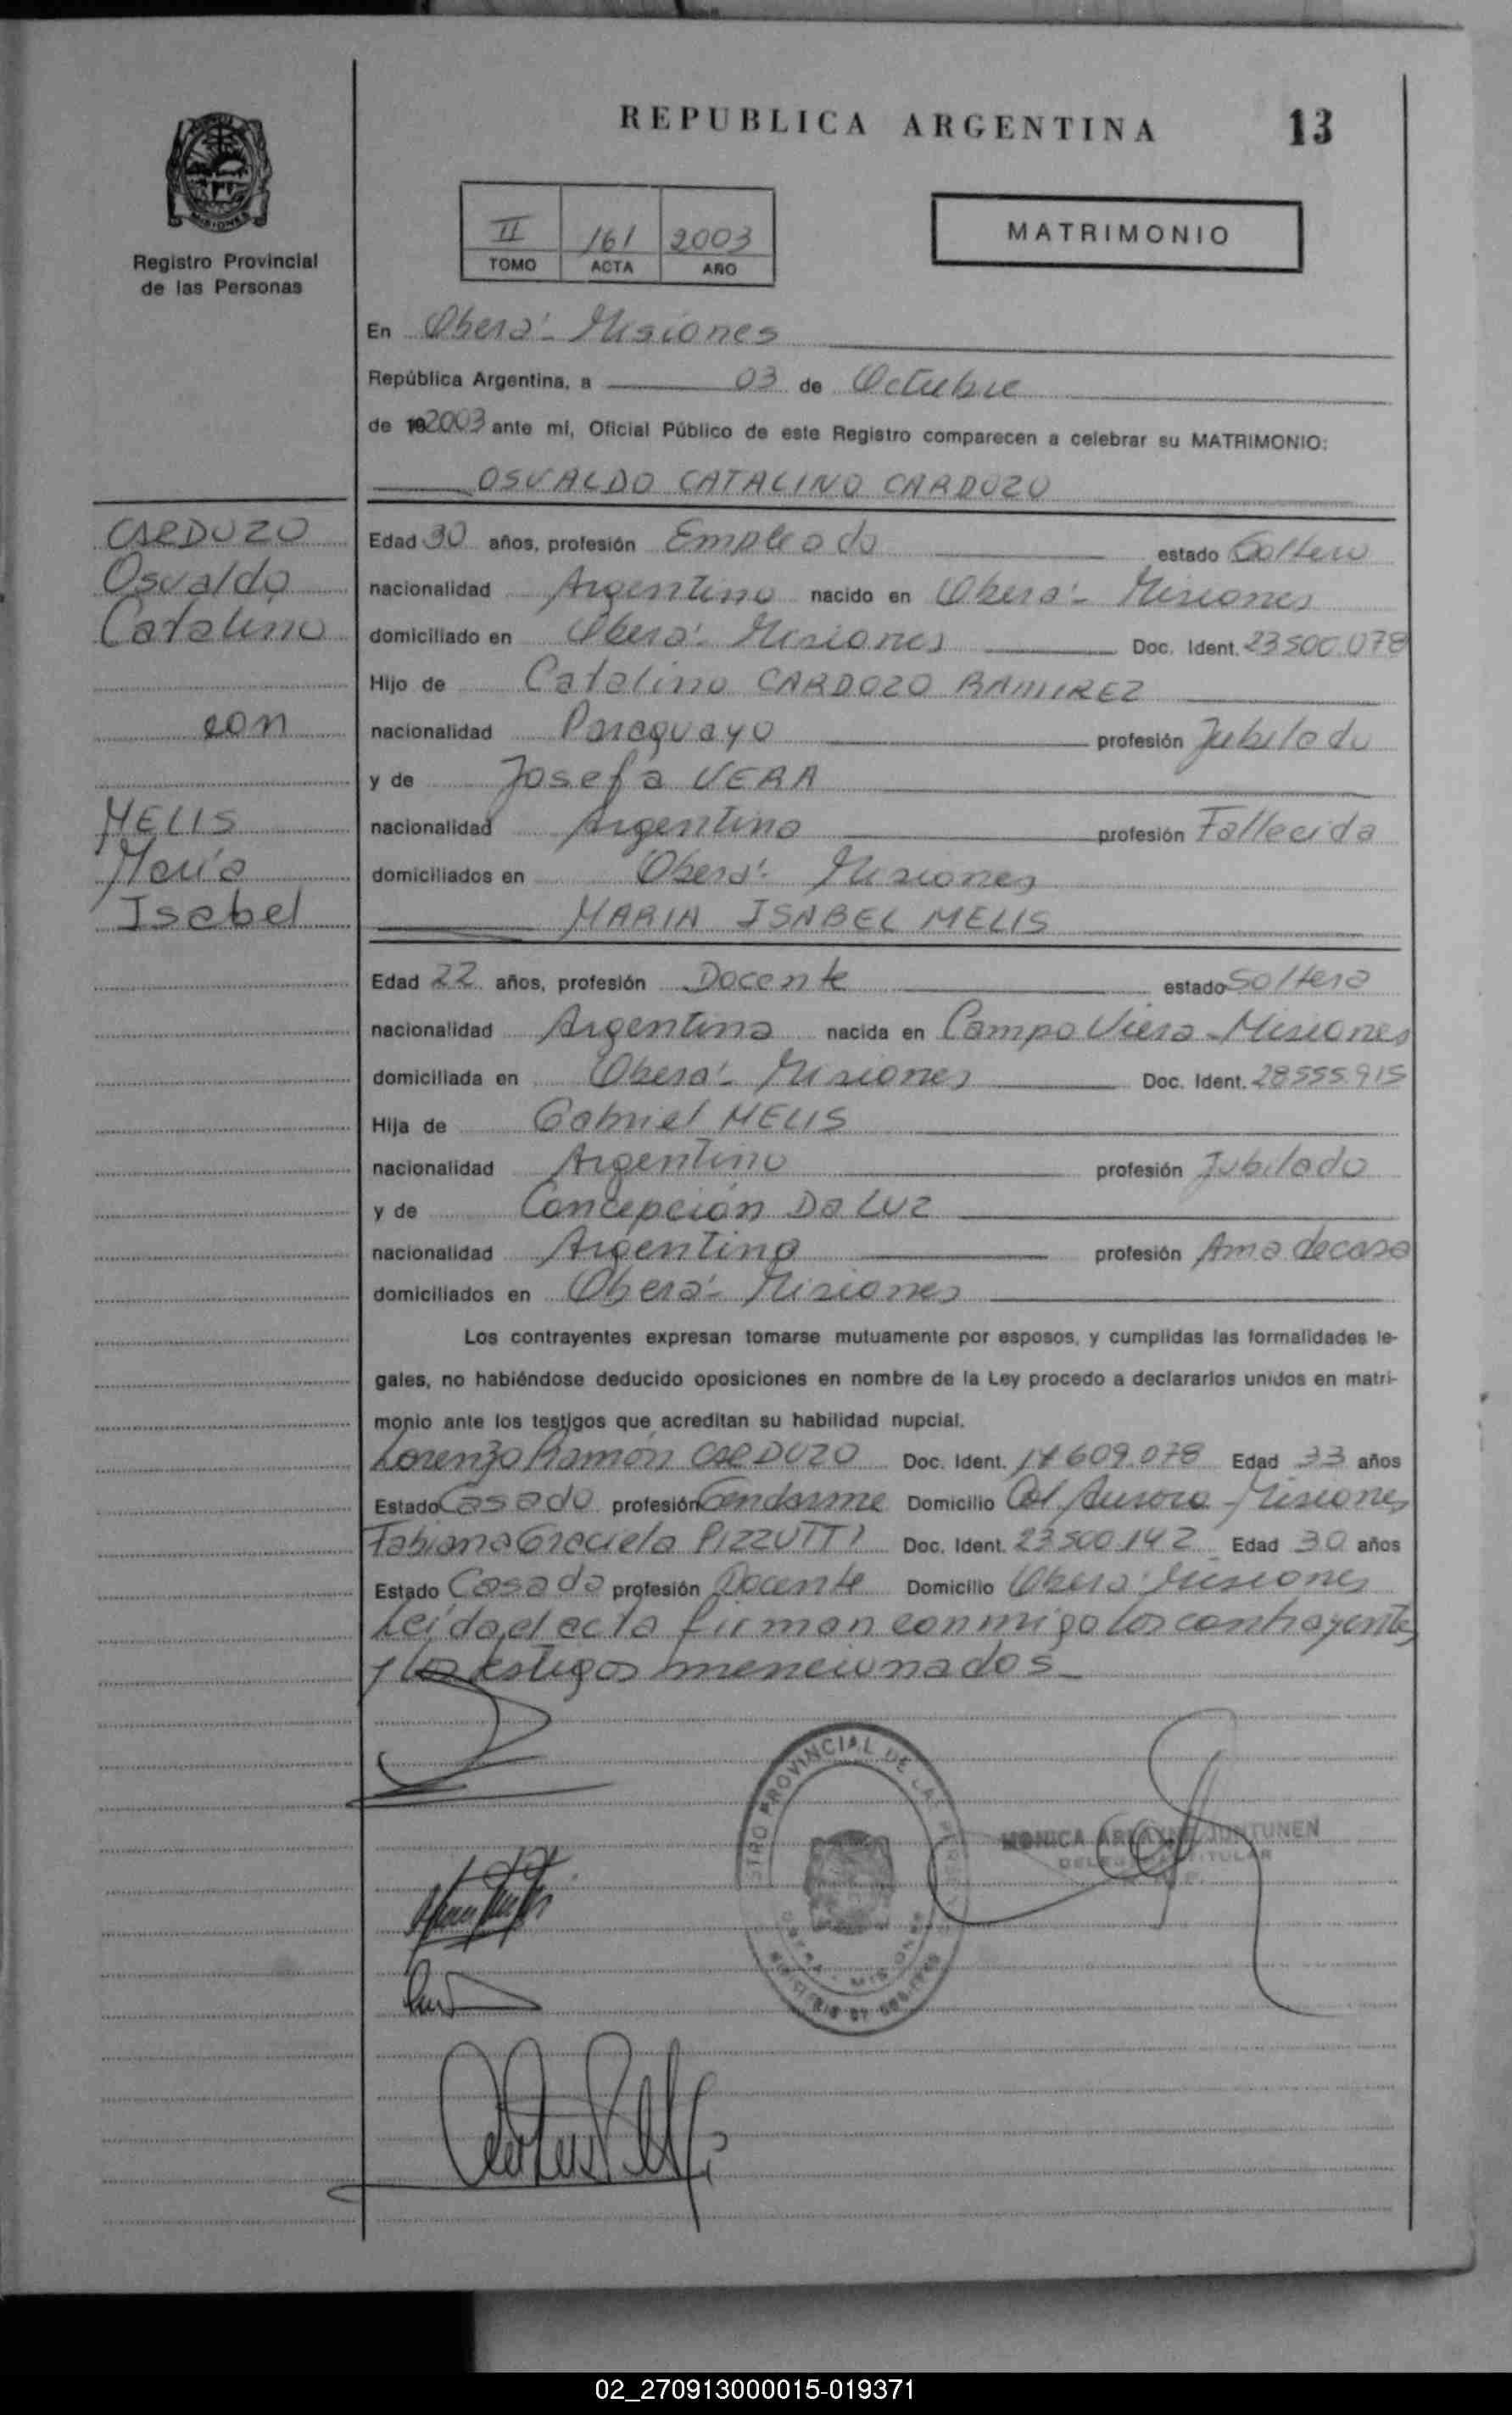 REPUBLICA ARGENTINA 13
MISIONES
Registro Provincial
de las Personas
II 161 2003
TOMO ACTA AÑO
MATRIMONIO
En Oberá - Misiones
República Argentina, a 03 de Octubre
de 192003 ante mí, Oficial Público de este Registro comparecen a celebrar su MATRIMONIO:
OSVALDO CATALINO CARDOZO
CARDOZO
Osvaldo
Catalino
con
MELIS
María
Isabel
Edad 30 años, profesión Empleado estado Soltero
nacionalidad Argentino nacido en Oberá - Misiones
domiciliado en Oberá - Misiones Doc. Ident. 23.500.078
Hijo de Catalino CARDOZO RAMIREZ
nacionalidad Paraguayo profesión Jubilado
y de Josefa VERA
nacionalidad Argentina profesión Fallecida
domiciliados en Oberá - Misiones
MARIA ISABEL MELIS
Edad 22 años, profesión Docente estado Soltera
nacionalidad Argentina nacida en Campo Viera - Misiones
domiciliada en Oberá - Misiones Doc. Ident. 28.555.915
Hija de Gabriel MELIS
nacionalidad Argentino profesión Jubilado
y de Concepción Da LUZ
nacionalidad Argentina profesión Ama de casa
domiciliados en Oberá - Misiones
Los contrayentes expresan tomarse mutuamente por esposos, y cumplidas las formalidades le-
gales, no habiéndose deducido oposiciones en nombre de la Ley procedo a declararlos unidos en matri-
monio ante los testigos que acreditan su habilidad nupcial.
Lorenzo Ramón CARDOZO Doc. Ident. Edad 33 años
Estado Casado profesión Gendarme Domicilio Col. Aurora - Misiones
Fabiana Graciela PIZZUTTI Doc. Ident. 23.500.142 Edad 30 años
Estado Casada profesión Docente Domicilio Oberá Misiones
Leída el acta firman conmigo los contrayentes
y los testigos mencionados
STRO PROVINCIAL DE LAS
MONICA JUNTUNEN
TITULAR
02_270913000015-019371